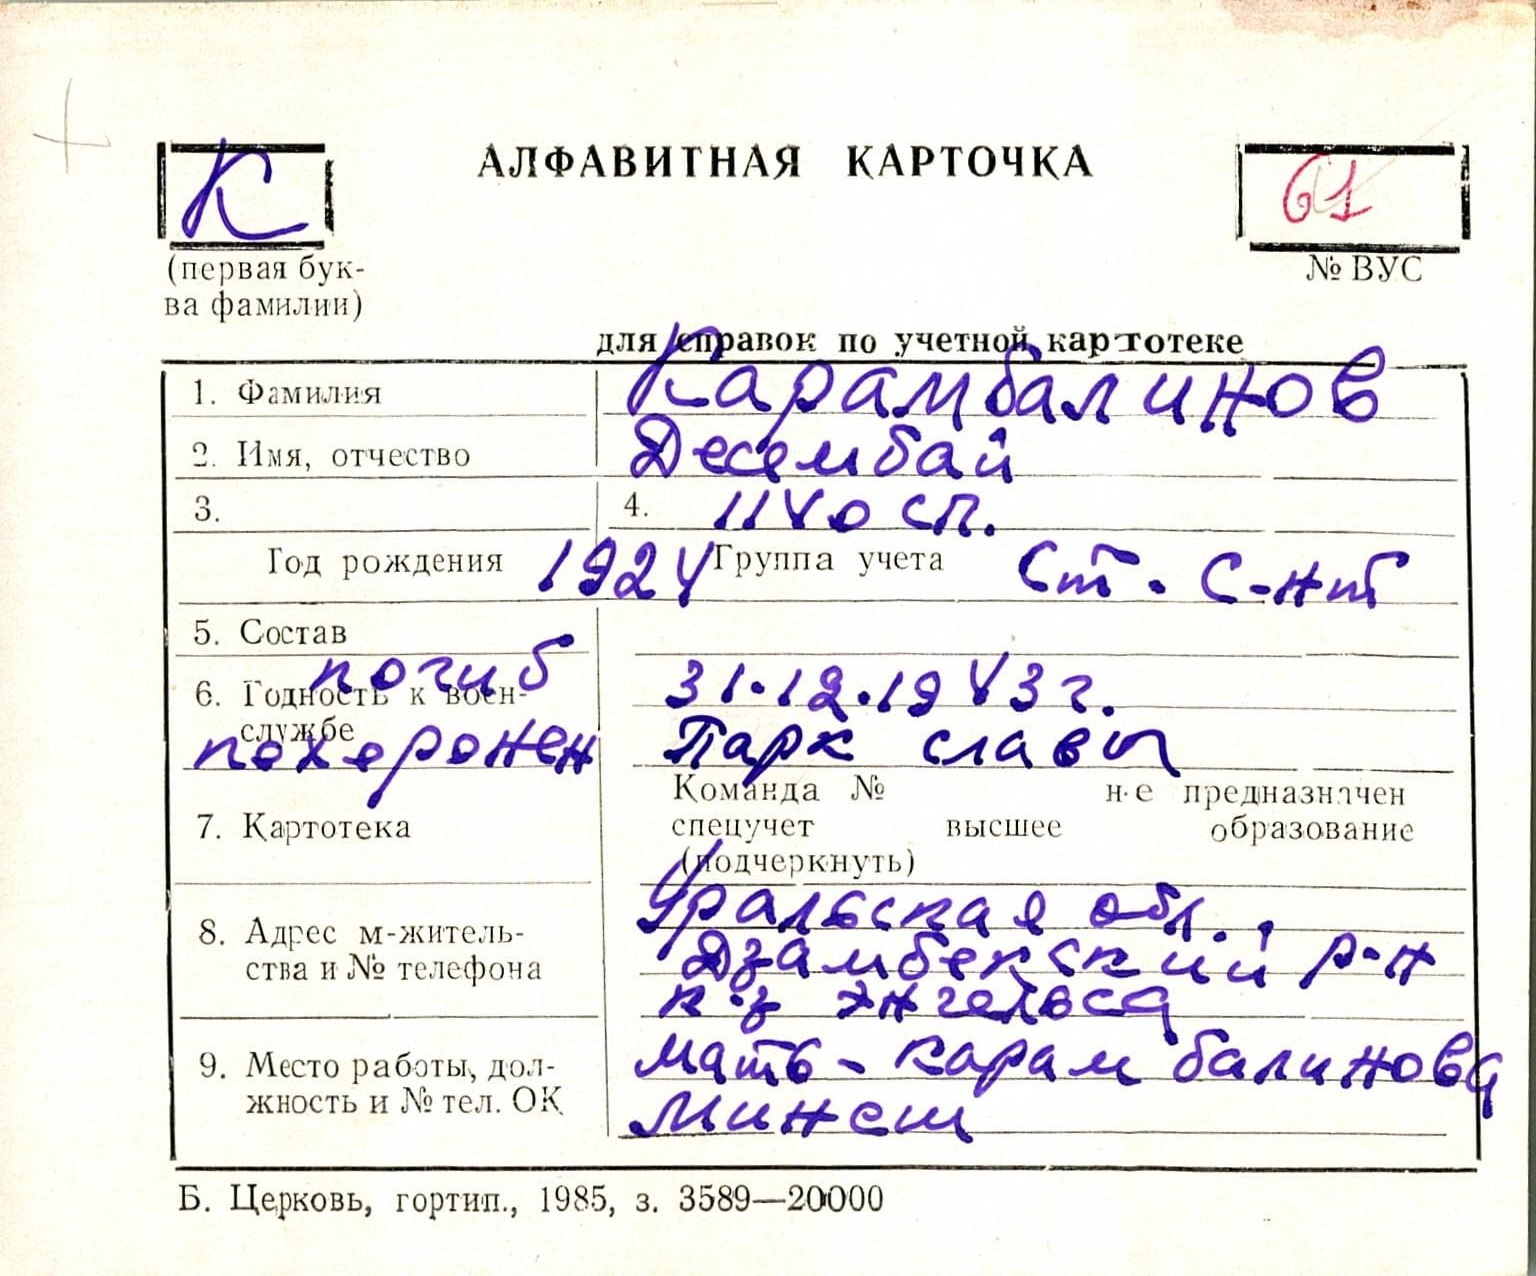 АЛФАВИТНАЯ КАРТОЧКА
К
61
(первая бук-
ва фамилии)
№ ВУС
для справок по учетной картотеке
1. Фамилия Карамбалинов
2. Имя, отчество Десембай
3. 4. 1140 сп.
Год рождения 1924 Группа учета Ст. С-нт
5. Состав
погиб 31.12.1943 г.
6. Годность к воен-
службе
похоронен Парк славы
Команда № не предназначен
7. Картотека спецучет высшее образование
(подчеркнуть)
Уральская обл.,
8. Адрес м-житель- Дзамбекский р-н
ства и № телефона
к-з Энгельса
9. Место работы, дол- мать - Карамбалинова
жность и № тел. ОК Минеш
Б. Церковь, гортип., 1985, з. 3589—20000